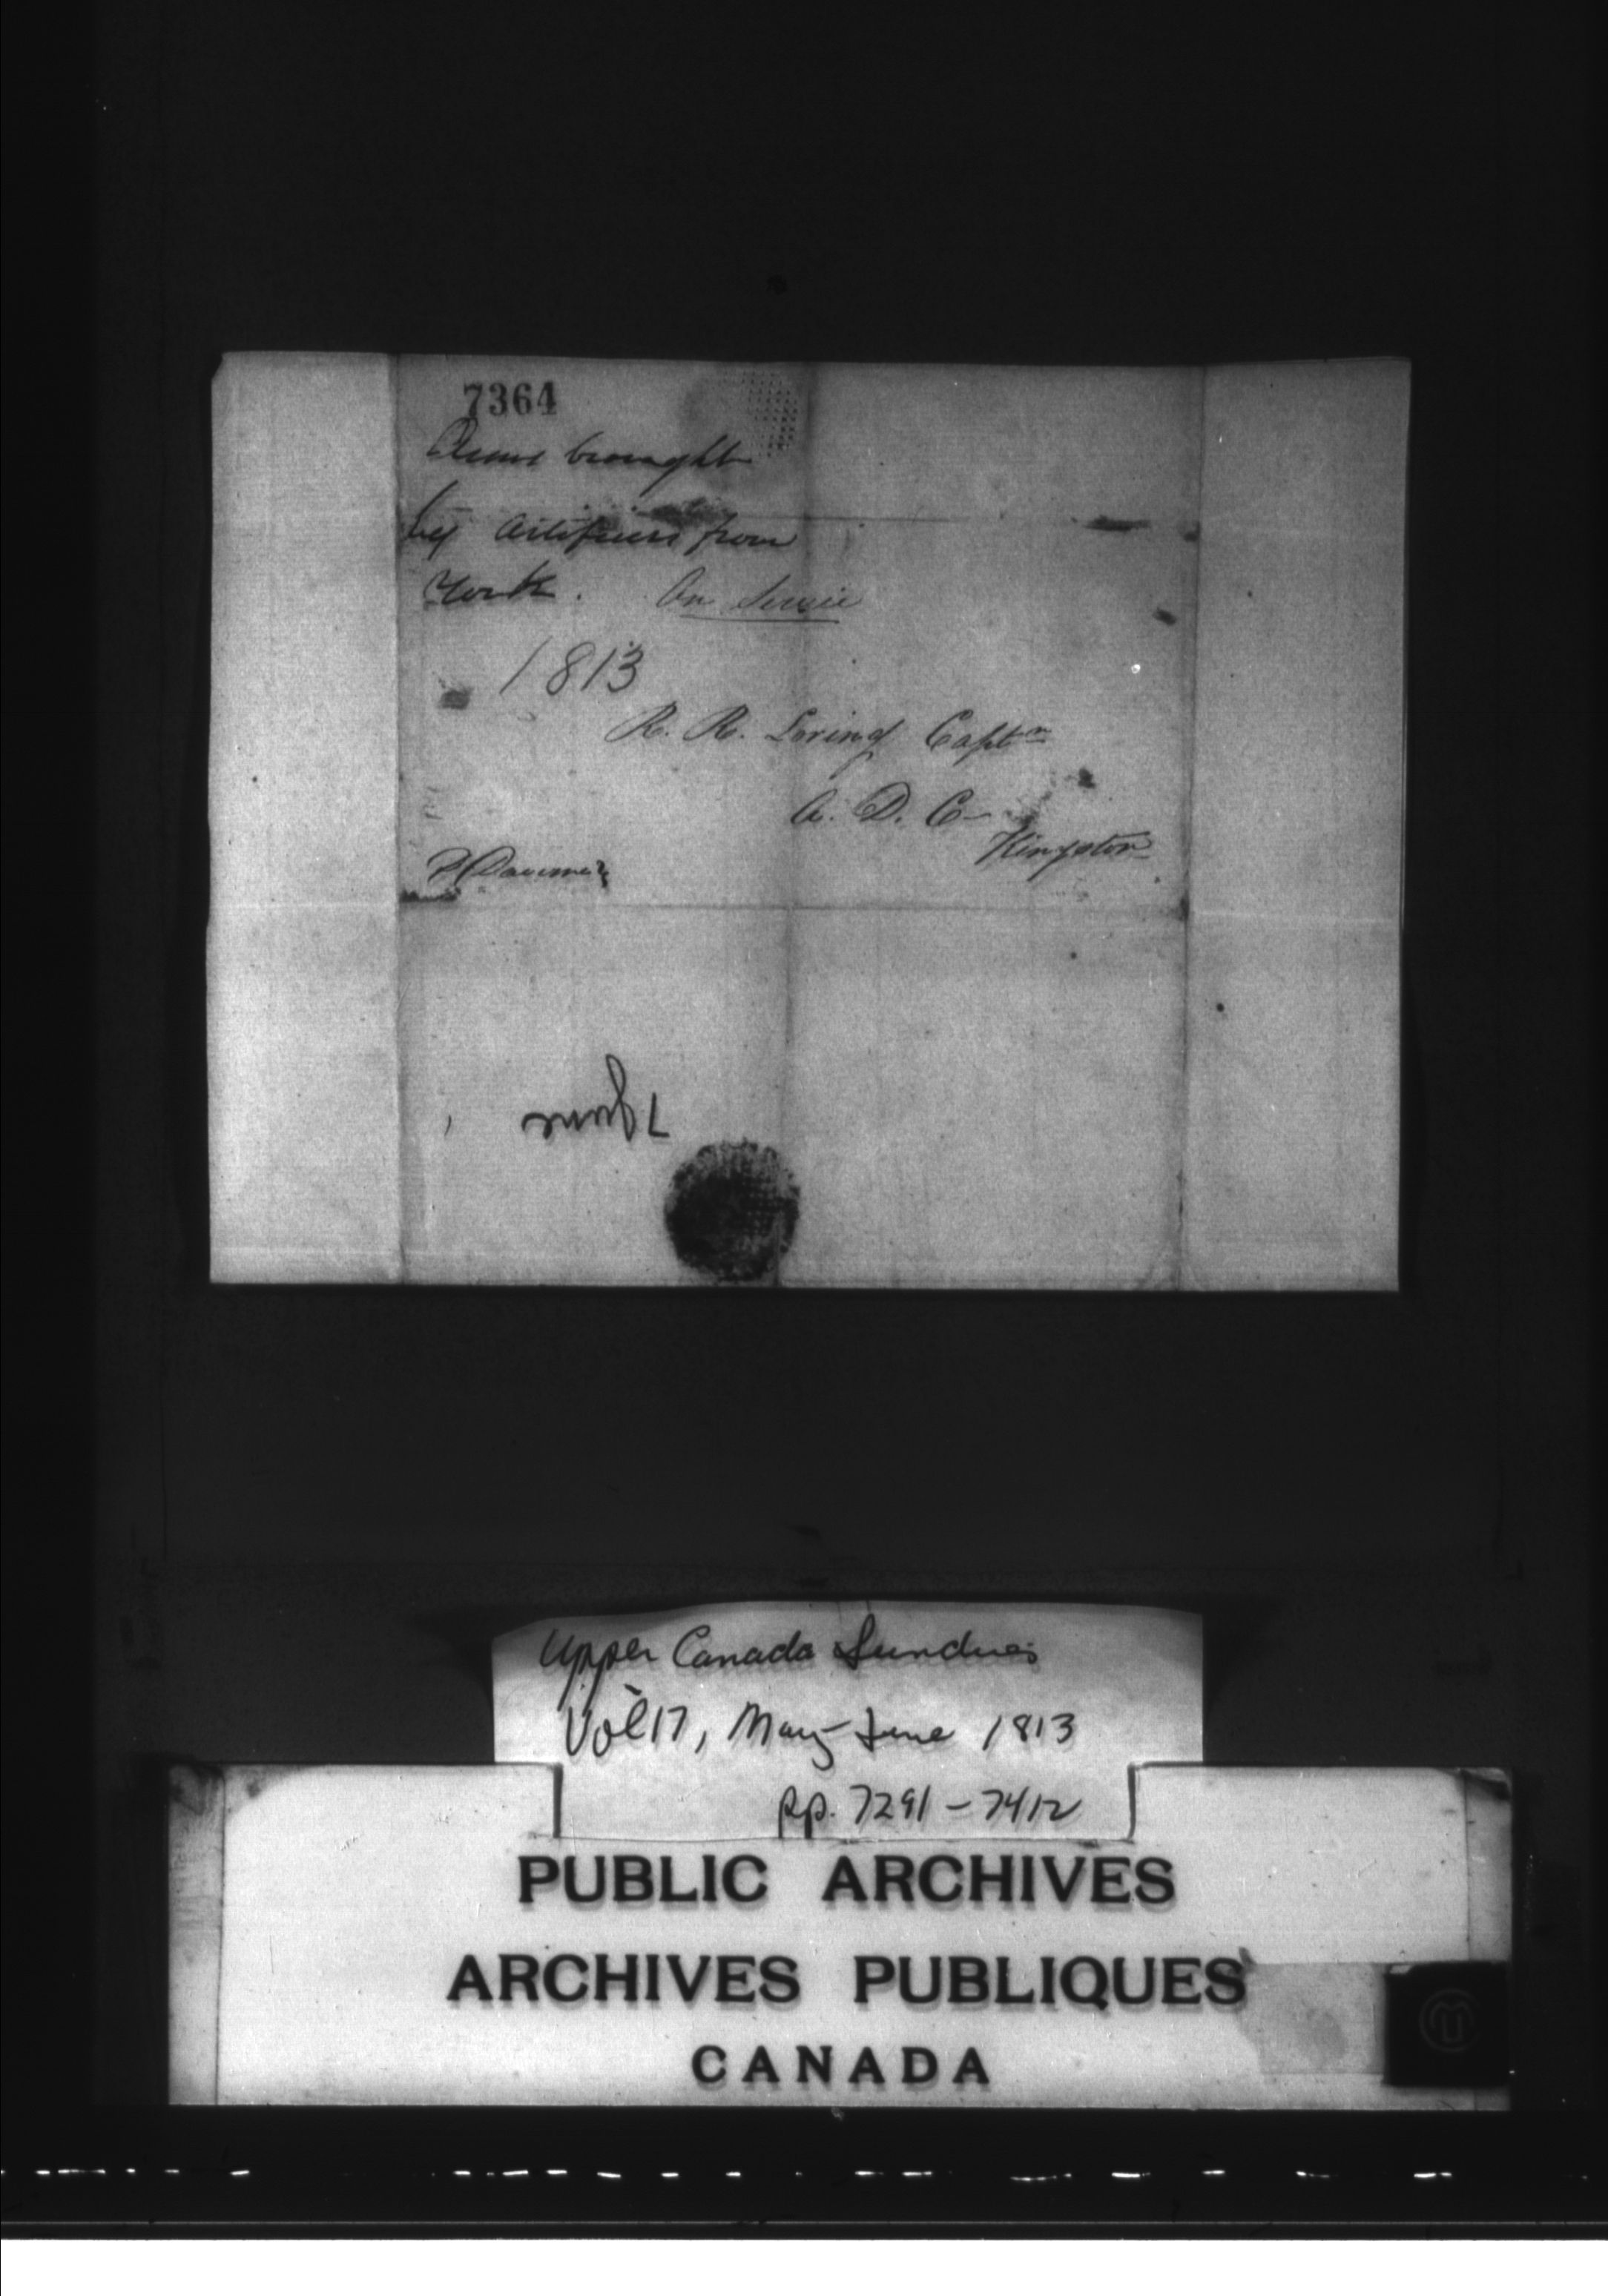 7364
Arms brought
by Artificers from
York. On Service
1813
R. R. Loring Captn
A. D. C
Kingston
Upper Canada Sundries
Vol 17, May-June 1813
pp. 7291 - 7412
PUBLIC ARCHIVES
ARCHIVES PUBLIQUES
CANADA